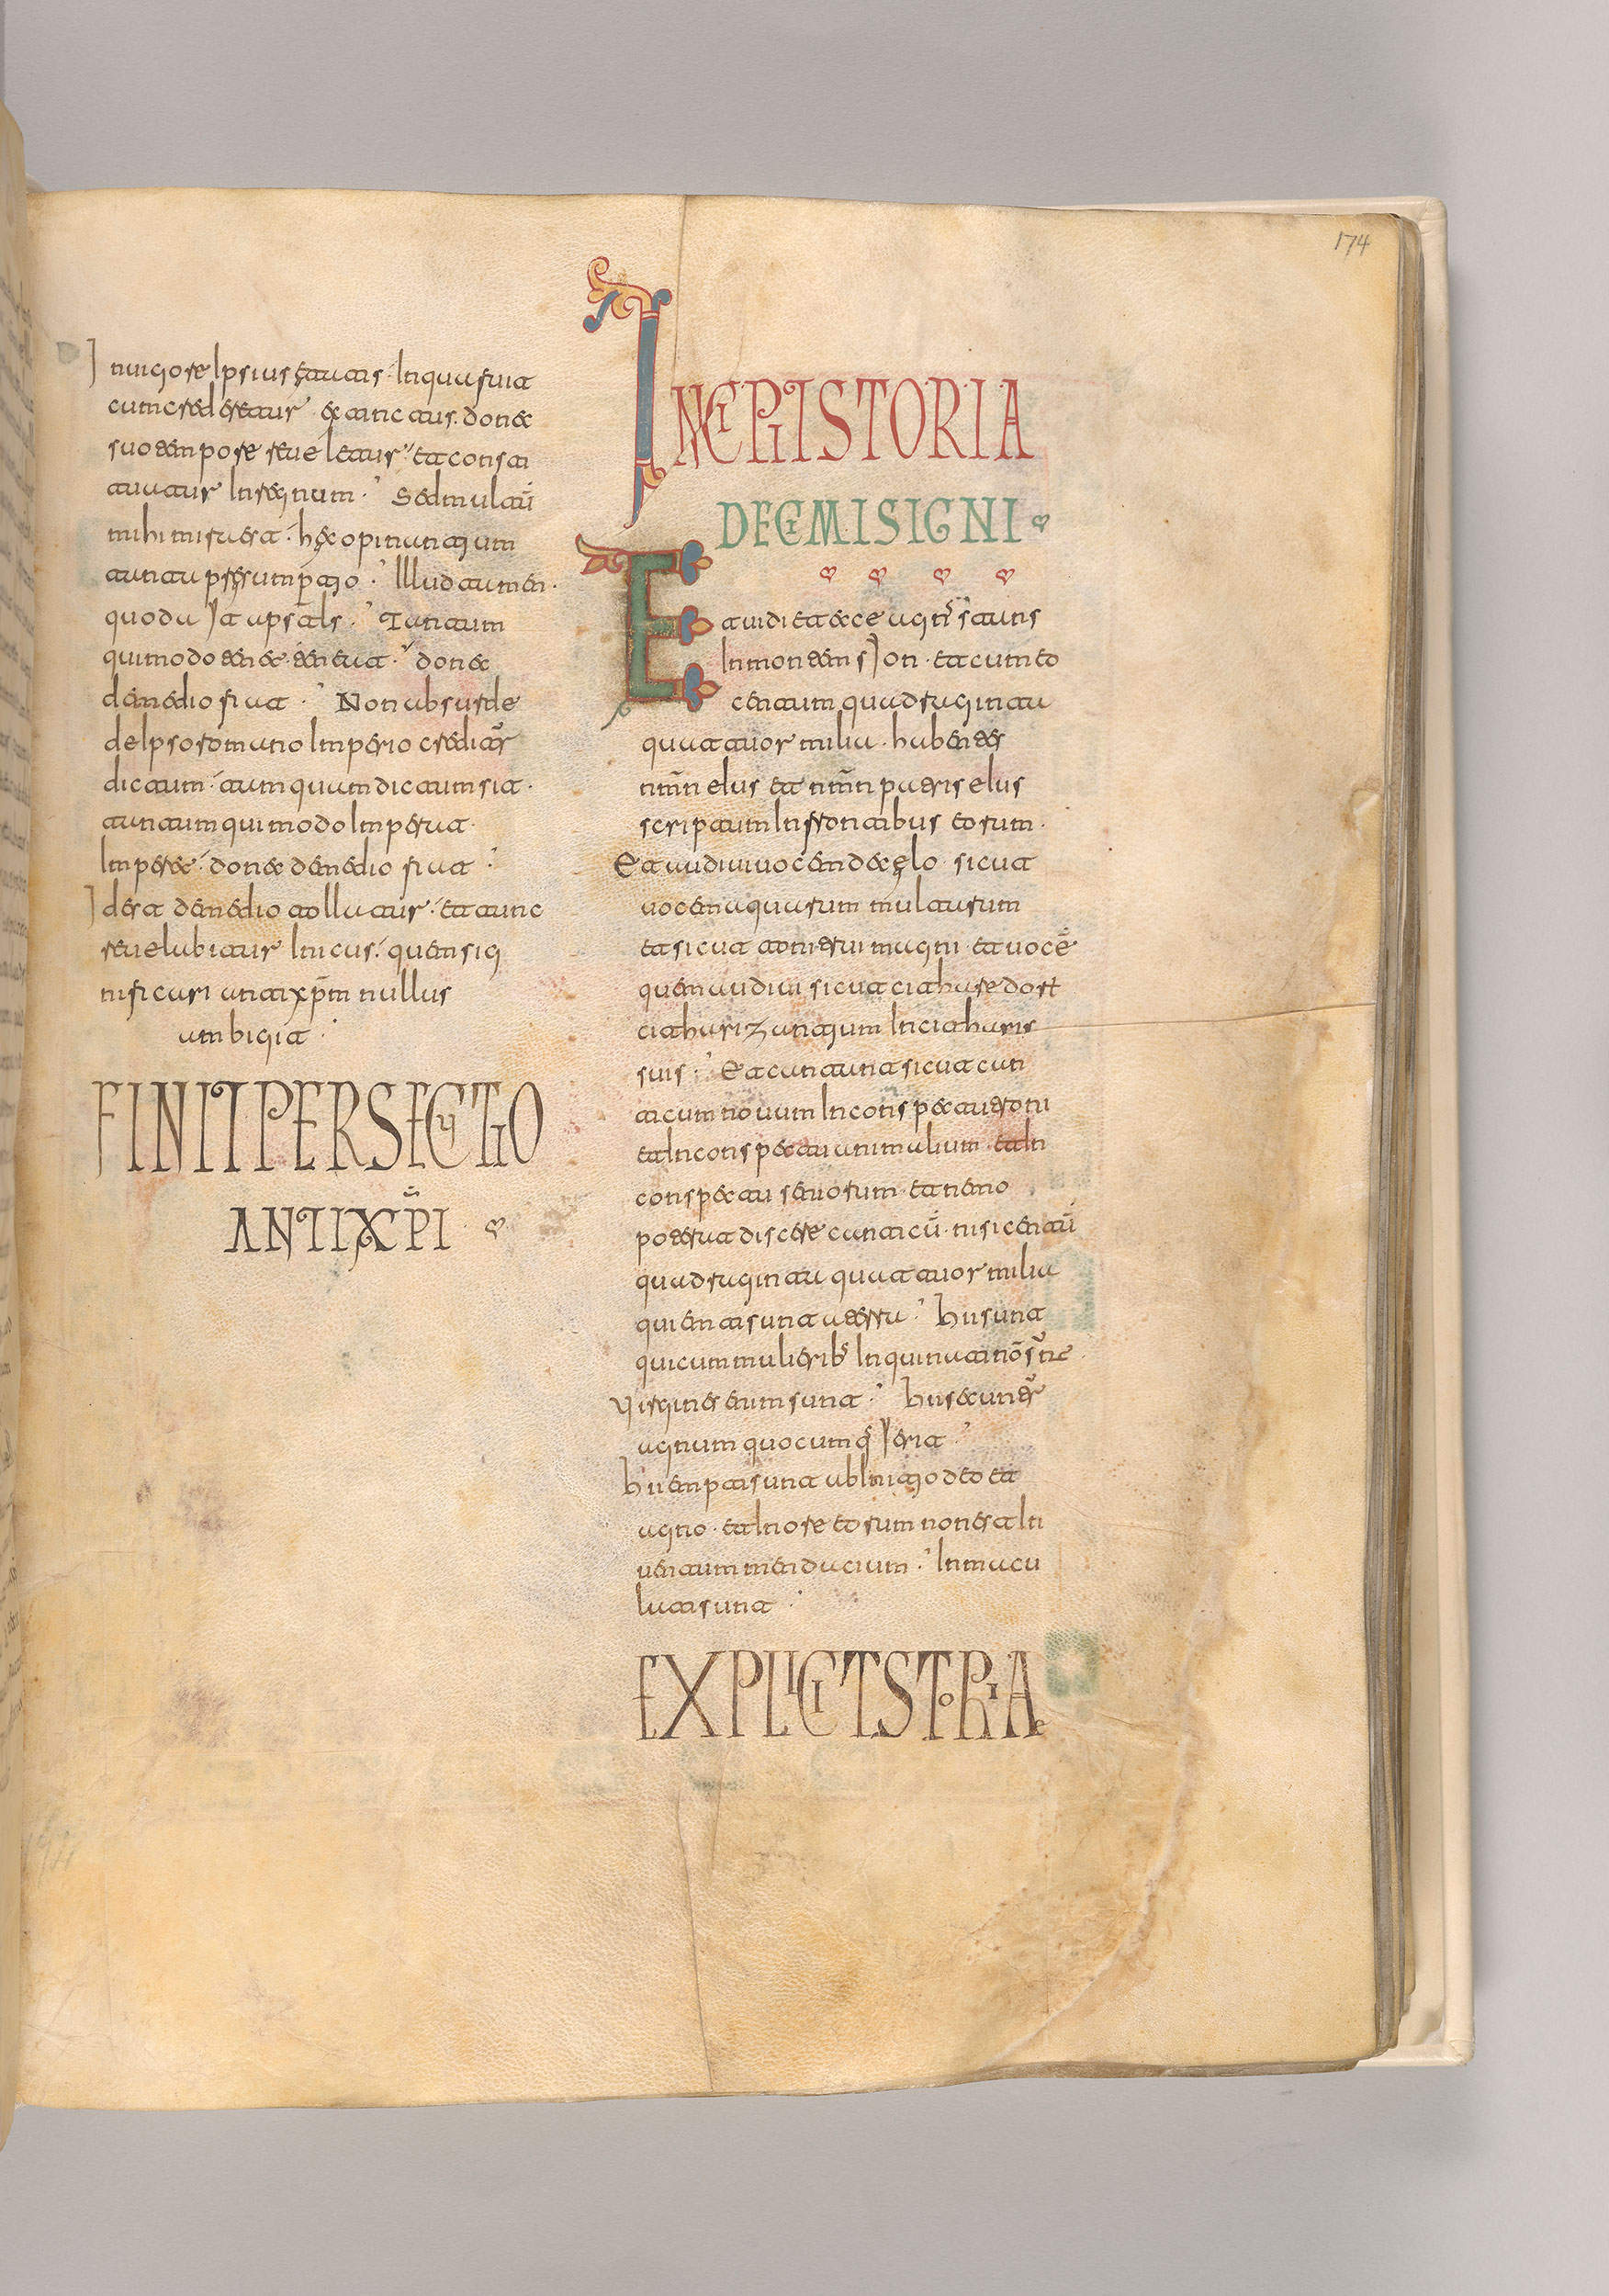 174
In uigore ipsius ętatis · in qua fuit
cum crederetur extinctus · donec
suo tempore reueletur · et consti
tuatur in regnum · Sed multū
mihi mira est · hęc opinantium
tanta pręsumptio · Illud tamen ·
quod ait apstls · Tantum
qui modo tenet · teneat · donec
de medio fiat · Non absurde
de ipso romano imperio creditur
dictum · tamquam dictum sit ·
tantum qui modo imperat ·
imperet · donec de medio fiat ·
Id est de medio tollatur · et tunc
reuelabitur inicus · quem sig
nificari antixpm nullus
ambigit ·
FINIT PERSECUTIO
ANTIXPI
INCIPIT ISTORIA
DECIMI SIGNI
Et uidi et ecce agns stans
in monte sion · et cum eo
centum quadraginta
quattuor milia · habentes
nmn eius et nmn patris eius
scriptum in frontibus eorum ·
Et audiui uocem de cęlo sicut
uocem aquarum multarum
et sicut tonitrui magni · et uocē
quem audiui sicut citharedor
citharizantium in citharis
suis · Et cantant sicut can
ticum nouum in conspectu troni
et in conspectu animalium · et in
conspectu seniorum · et nemo
poterat discere canticū · nisi centū
quadraginta quattuor milia
qui emti sunt a terra · Hii sunt
qui cum mulieribs inquinati nō snt
Virgines enim sunt · Hii secuntr
agnum quocumq ierit ·
hii empti sunt ab initio deo et
agno · et in ore eorum non est in
uentum mendacium · Inmacu
lati sunt ·
EXPLICIT STORIA